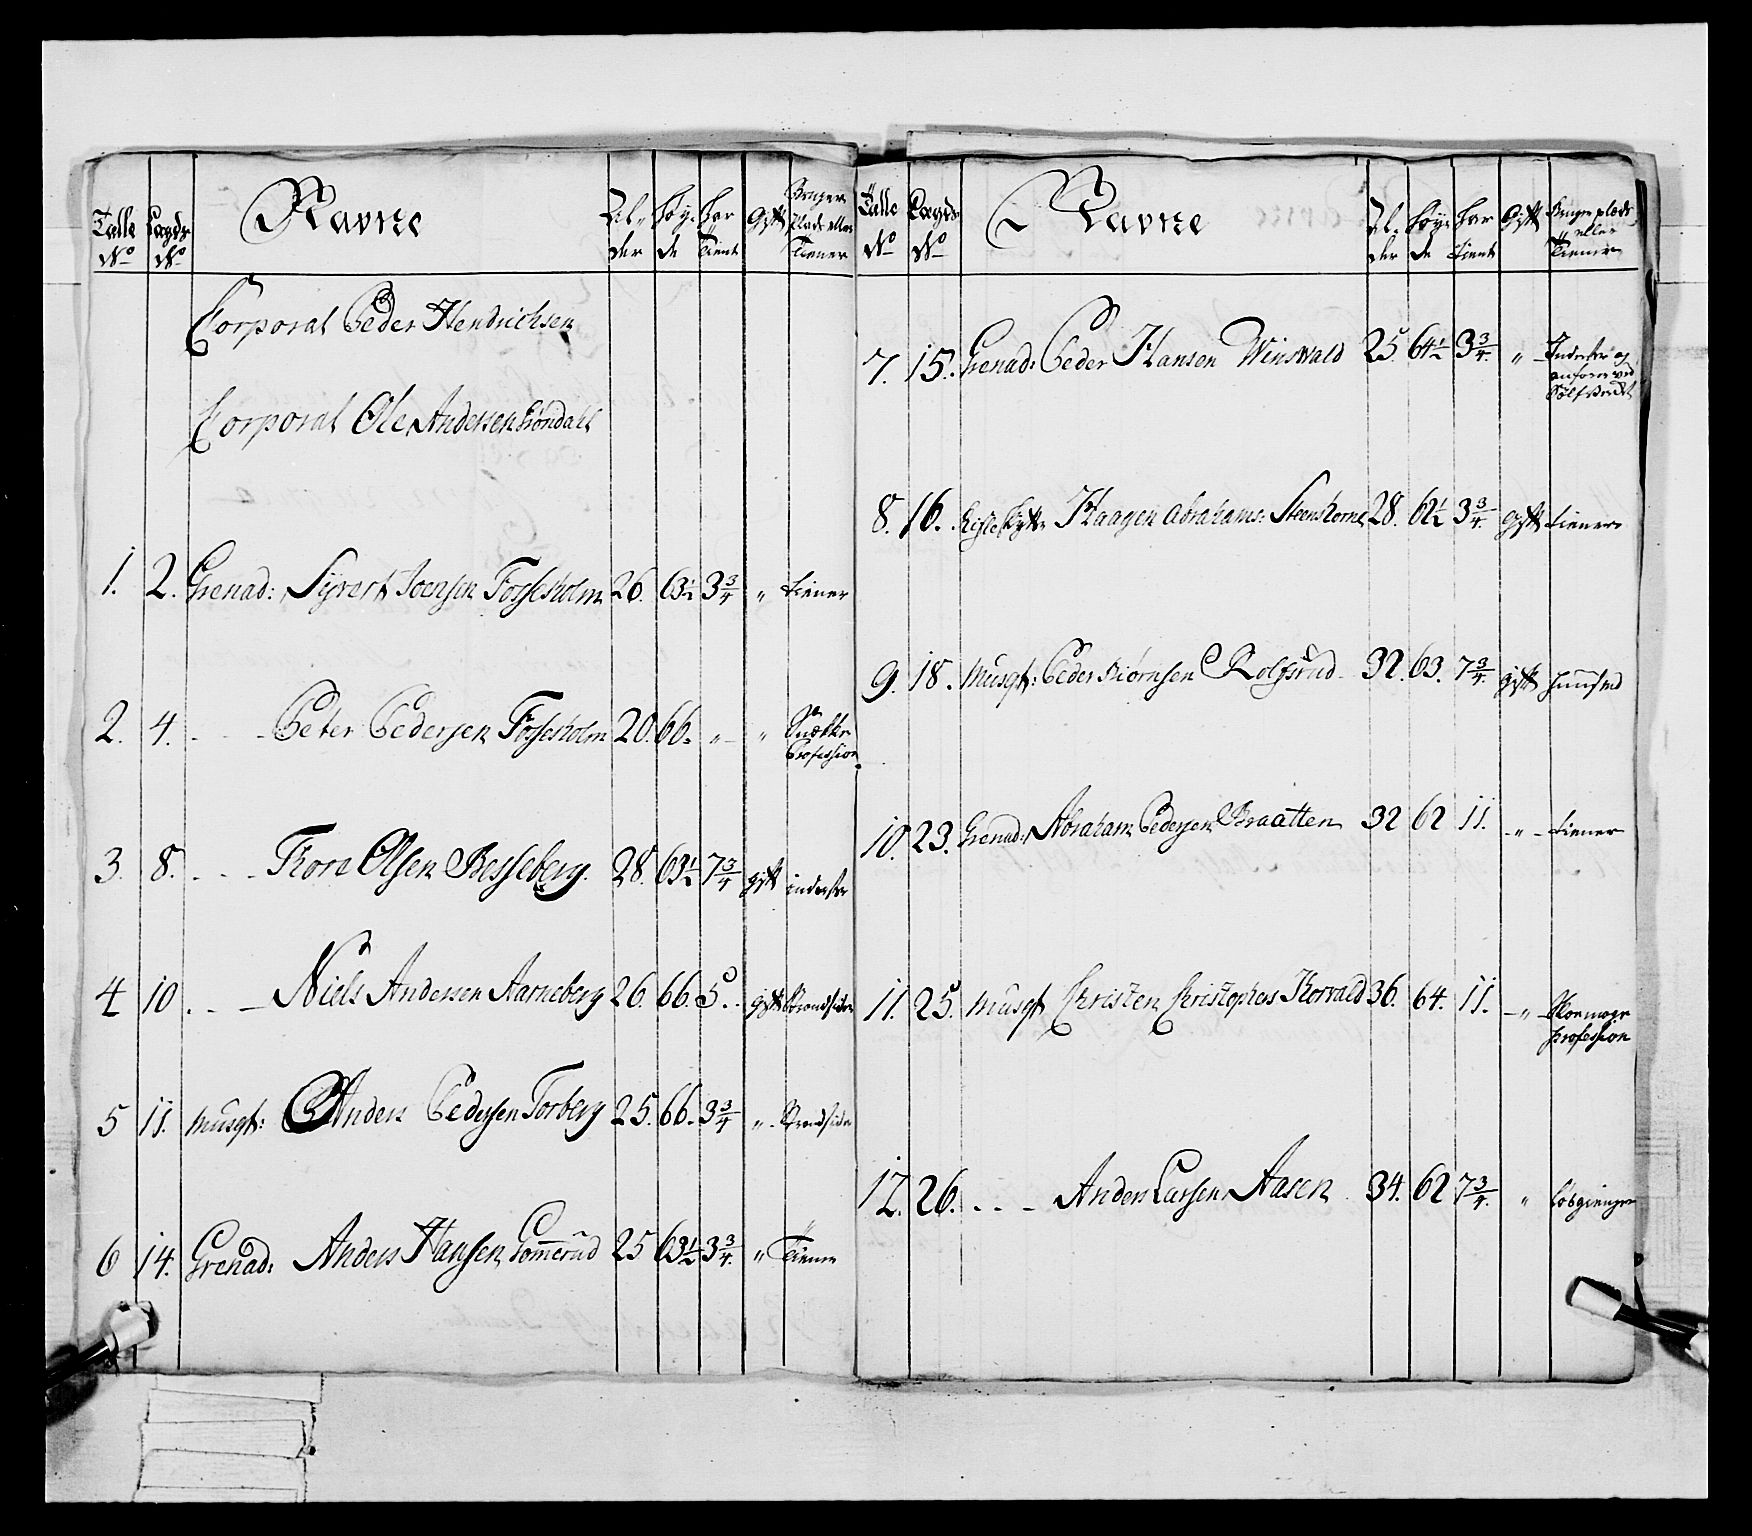 Talle No Lægds No Navne Al- der Høy- de har Tient Gift Bruger Plads eller Tiener
Corporal Peder Hendrichsen
Corporal Ole Andersen Grøndahl
1. 2. Grenad: Syvert Joensen Fossesholm 26. 63½ 3¾ " tiener
2. 4. - - - Peter Pedersen Fossesholm 20. 66. " " Snedker Profession
3. 8. - - - Thore Olsen Besseberg. 28. 63½ 7¾ gift inderste
4 10 - - - Niels Andersen Aarneberg 26. 66. 5. gift Strandsider
5 11. Musqt: Anders Pedersen Torberg 25. 66. 3¾ " Strandsider
6 14. Grenad: Anders Hansen Gommerud 25 63½ 3¾. " Tiener
Talle No Lægds No Navne Al- der Høy- de har tient Gift Bruger plads eller Tiener
7. 15. Grenad: Peder Hansen Winswald 25. 64½ 3¾. " Inderster og
8. 16. Haagen Abrahams: Steenshorne 28. 62½ 3¾. Gift tiener
9. 18. Musqt: Peder Biørnsen Rolfsrud 32. 63. 7¾. gift
10. 23. Grenad: Abraham Pedersen Braatten 32 62 11. - " - tiener
11. 25. Musqt Christen Christophers Horvald 36. 64. 11. - " - Skoemager Profession
12. 26. - - - Anders Larsen Aasen 34. 62 7¾. " løsgienger